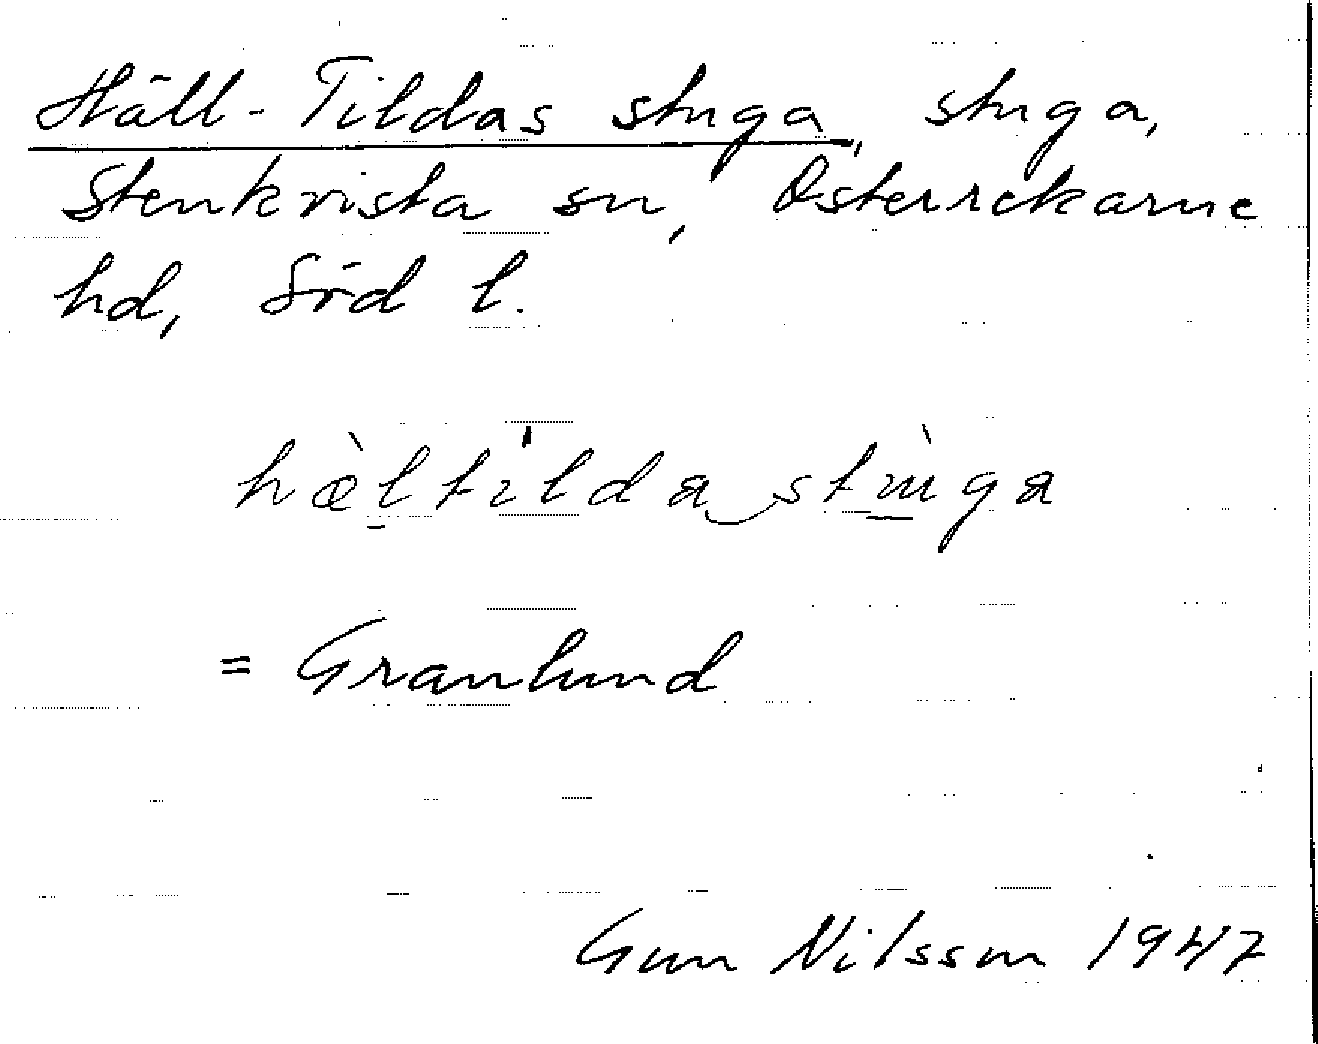 Häll-Tildas stuga, stuga,
Stenkvista sn, Österrekarne
hd, Söd l.
hæ̀ltɩldastùga
= Granlund
Gun Nilsson 1947